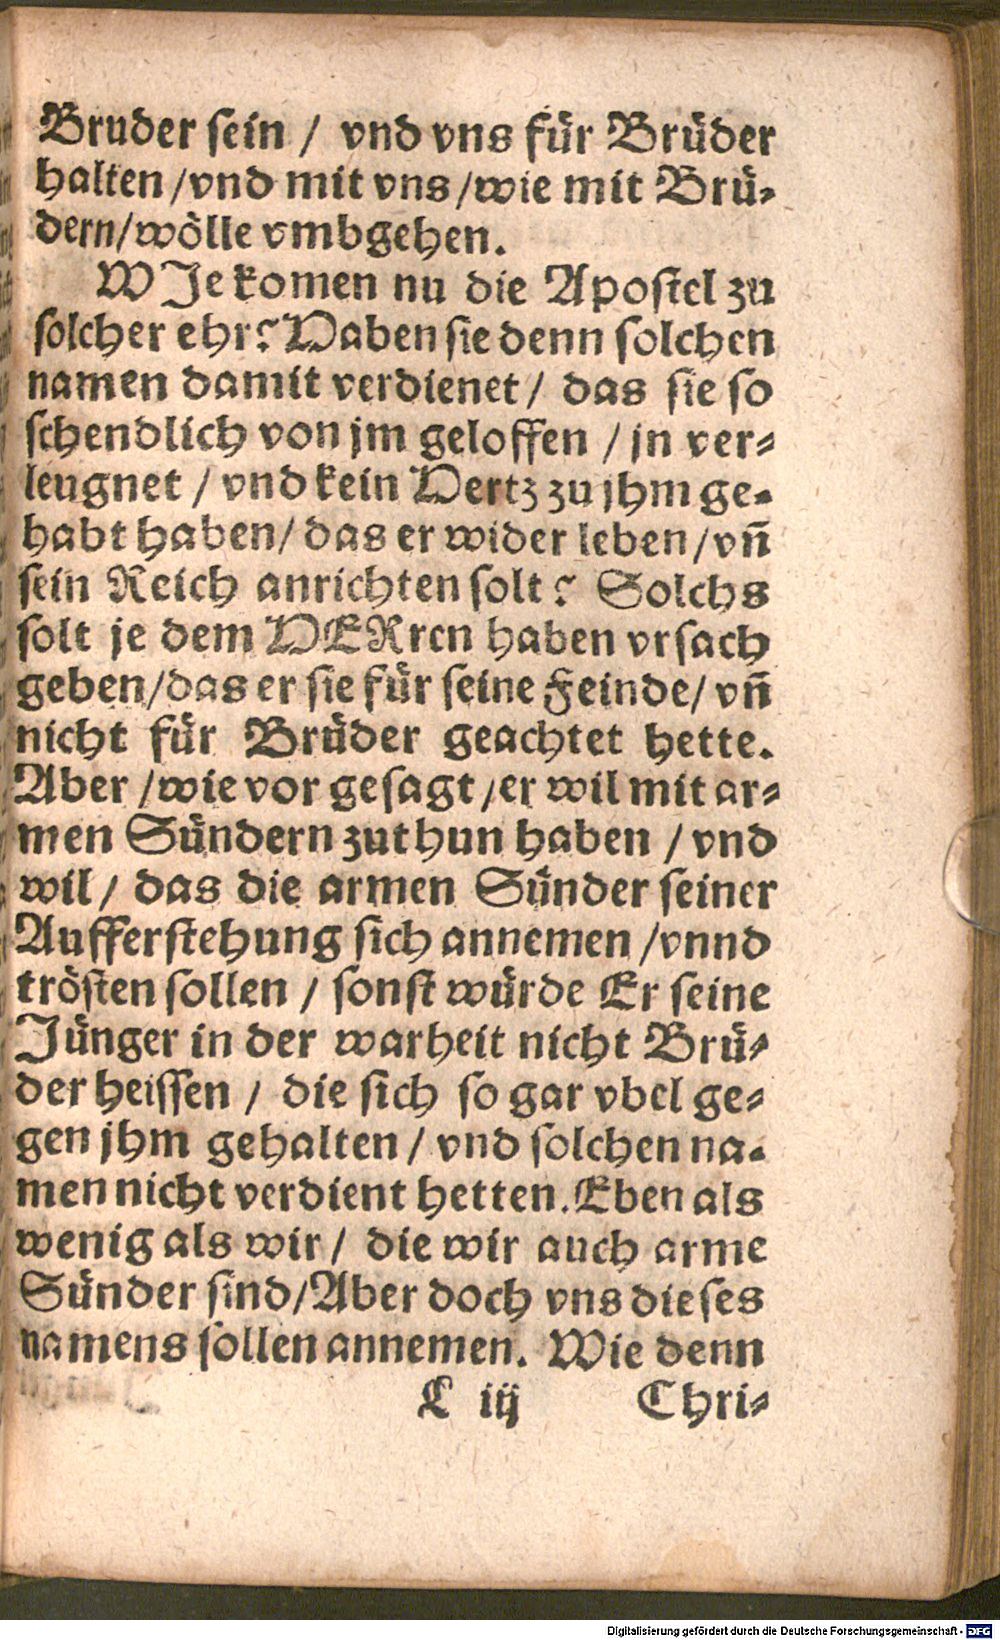 Bruder sein / vnd vns für Brüder
halten /vnd mit vns /wie mit Brü-
dern/wölle vmbgehen.
WJe komen nu die Apostel zu
solcher ehr? Haben sie denn solchen
namen damit verdienet / das sie so
schendlich von jm geloffen / jn ver-
leugnet / vnd kein Hertz zu jhm ge-
habt haben/ das er wider leben /vñ
sein Reich anrichten solt? Solchs
solt je dem HERren haben vrsach
geben/das er sie für seine Feinde/ vñ
nicht für Brüder geachtet hette.
Aber /wie vor gesagt /er wil mit ar-
men Sündern zuthun haben / vnd
wil / das die armen Sünder seiner
Aufferstehung sich annemen /vnnd
trösten sollen / sonst würde Er seine
Jünger in der warheit nicht Brü-
der heissen / die sich so gar vbel ge-
gen jhm gehalten / vnd solchen na-
men nicht verdient hetten. Eben als
wenig als wir / die wir auch arme
Sünder sind/Aber doch vns dieses
namens sollen annemen. Wie denn
C iij Chri-
Digitalisierung gefördert durch die Deutsche Forschungsgemeinschaft - DFG